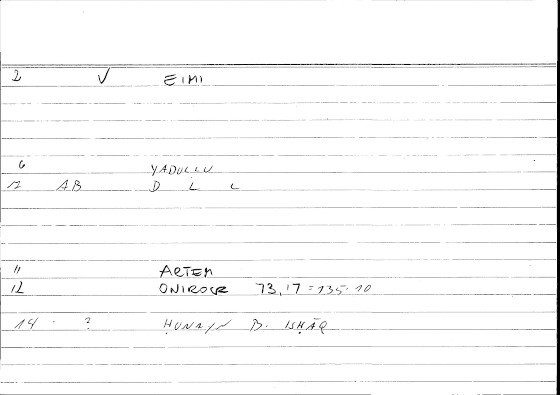 2 V EIMI
6 YADULLU
12 AB D L L
11 ARTEM
12 ONIROCR 73,17 = 135.10
14 . ? ḤUNAYN B. ISḤĀQ